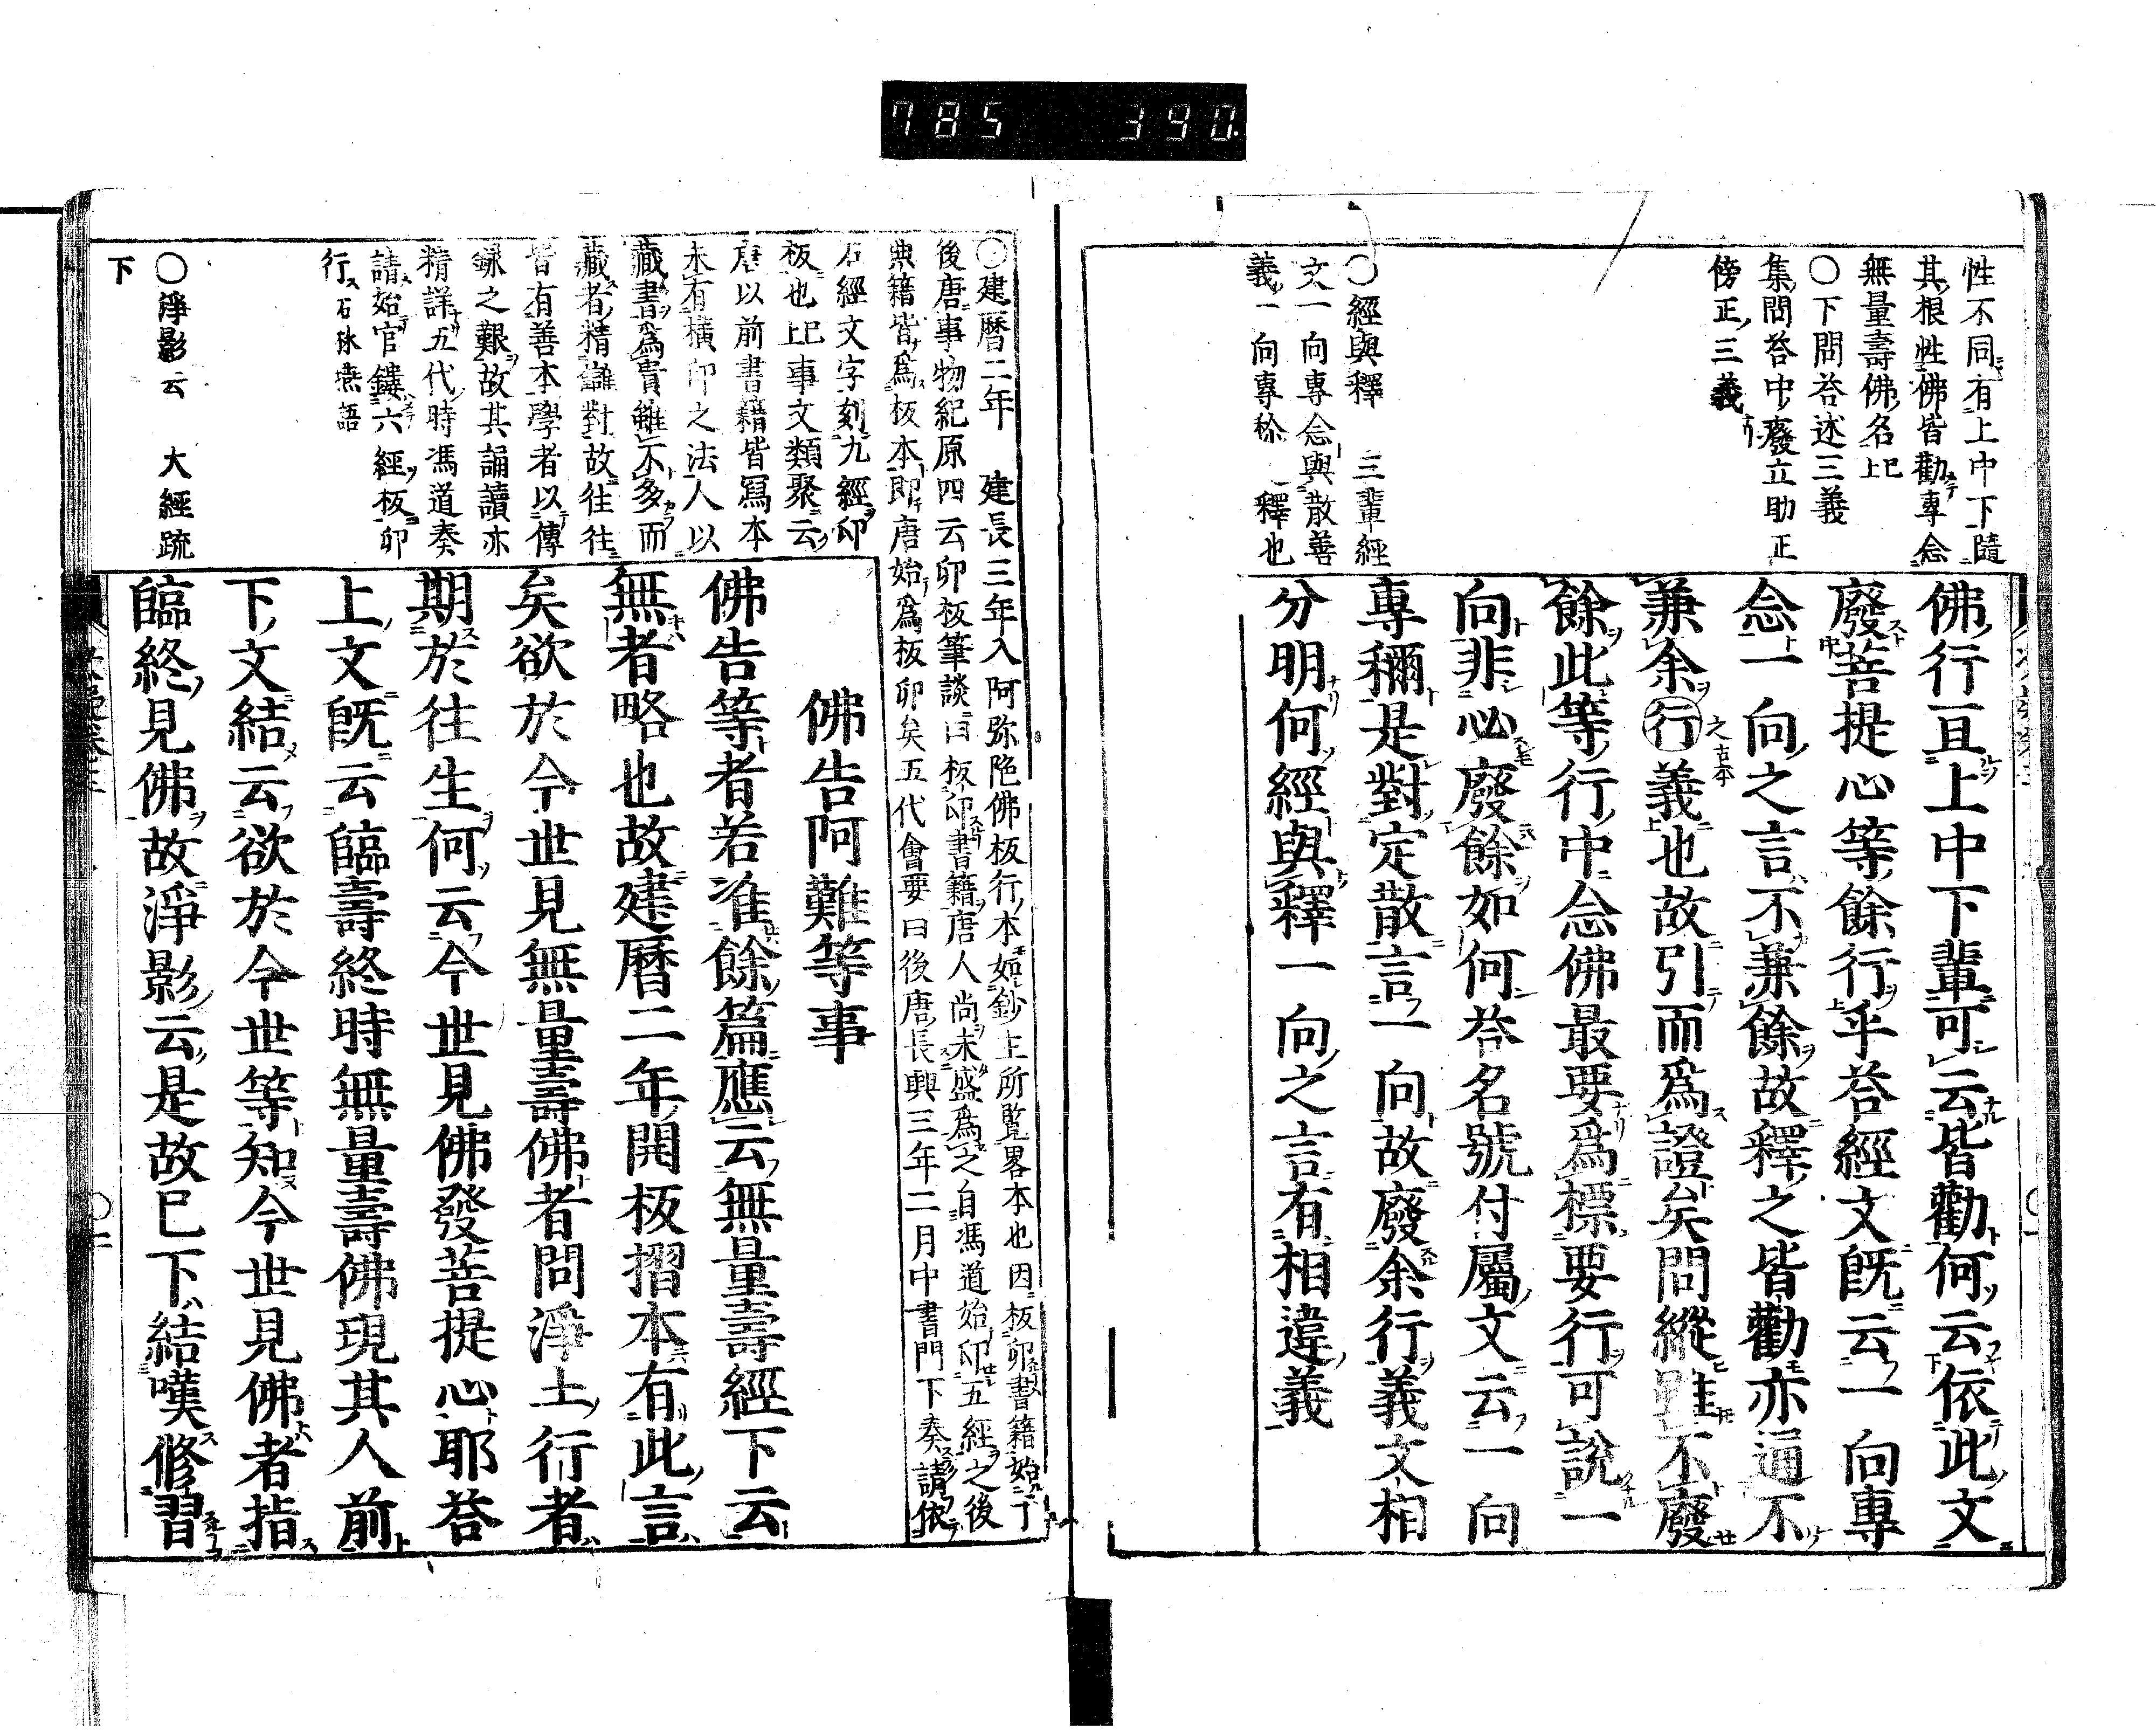 785 390
性不同有上中下隨
其根性佛皆勸專念
無量壽佛名上巳
〇下問荅述三義
集問荅中廢立助正
傍正三義
〇經與釋 三輩經
文一向專念與散善
義一向專称 釋也
佛行亘上中下輩可云皆勸何云依此文
廢菩提心等餘行乎荅經文既云一向專
念一向之言不兼餘故釋之皆勸亦通不
兼余行義也故引而爲證矣問縱雖不廢
之古本
餘此等行中念佛最要爲標要行可說一
向非必廢餘如何荅名號付屬文云一向
專稱是對定散言一向故廢余行義文相
分明何經與釋一向之言有相違義
〇建曆二年 建長三年入阿弥陁佛板行本如鈔主所覧畧本也因板卯書籍始了
後唐事物紀原四云卯板筆談曰板卯書籍唐人尚未盛爲之自馮道始卯五經之後
典籍皆爲板本即唐始爲板卯矣五代會要曰後唐長興三年二月中書門下奏請依
石經文字刻九經卯
板也上巳事文類聚云
唐以前書籍皆寫本
未有橫卯之法人以
藏書爲貴雖不多而
藏者精讎對故往往
皆有善本學者以傳
錄之艱故其誦讀亦
精詳五代時馮道奏
請始官鏤六經板卯
行石林燕語
〇淨影云 大經疏
下
佛告阿難等事
佛告等者若准餘篇應云無量壽經下云
無者略也故建曆二年開板摺本有此言
矣欲於今世見無量壽佛者問淨土行者
期於往生何云今世見佛發菩提心耶荅
上文既云臨壽終時無量壽佛現其人前
下文結云欲於今世等知今世見佛者指
臨終見佛故淨影云是故巳下結嘆修習